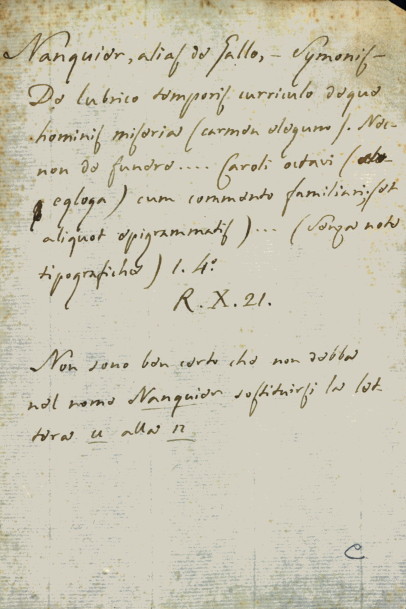 Nanquier, alias de Gallo, – Symonis –
De lubrico temporis curriculo deque
hominis miseria (carmen elegum). Nec-
non de funere .... Caroli octavi (
egloga) cum commento familiari; et
aliquot epigrammatis) ... (Senza note
tipografiche) 1. 4.°
R. X. 21.
Non sono ben certo che non debba
nel nome Nanquier sostituirsi la let-
tera u alla n
C